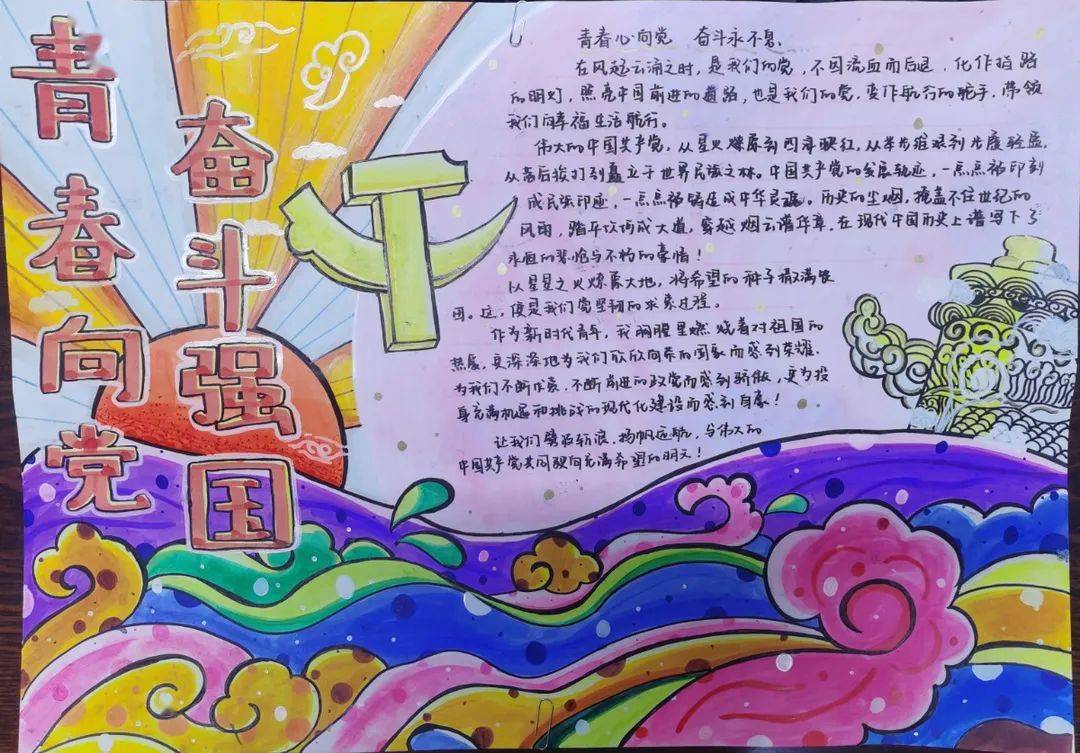 青春向党
奋斗强国
青春心向党 奋斗永不息、
在风起云涌之时，是我们的党，不因流血而后退，化作指路
的明灯，照亮中国前进的道路，也是我们的党，变作航行的舵手，带领
我们向幸福生活航行。
伟大的中国共产党，从星火燎原到四海映红，从举步维艰到步履轻盈，
从落后挨打到矗立于世界民族之林。中国共产党的发展轨迹，一点点被印刻
成民族印迹，一点点被铸造成中华灵魂。历史的尘烟，掩盖不住世纪的
风雨，踏平坎坷成大道，穿越烟云谱华章，在现代中国历史上谱写下了
永恒的悲怆与不朽的豪情！
以星星之火燎原大地，将希望的种子撒满农
田。这，便是我们党坚韧的求索过程。
作为新时代青年，我胸膛里燃烧着对祖国的
热爱，更深深地为我们欣欣向荣的国家而感到荣耀、
为我们不断求索、不断前进的政党而感到骄傲，更为投
身充满机遇和挑战的现代化建设而感到自豪！
让我们劈波斩浪、扬帆远航，与伟大的
中国共产党共同驶向充满希望的明天！